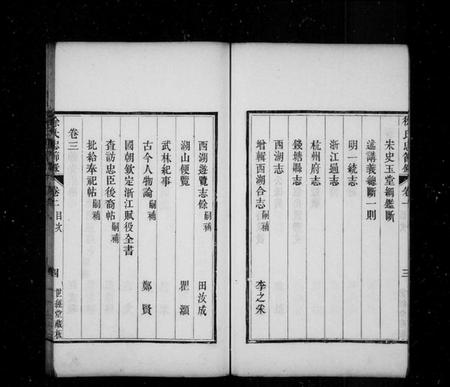 宋史玉堂綱鑑斷
通講義總斷一則
明一統志
浙江通志
杭州府志
錢塘縣志
西湖志
增輯西湖合志嗣補 李之粊
三
西湖遊覽志餘嗣補 田汝成
湖山便覽 瞿灝
武林紀事
古今人物論嗣補 鄭賢
國朝欽定浙江賦役全書
查訪忠臣後裔帖嗣補
批給奉祀帖嗣補
卷三
卷二目次
四
世經堂藏板